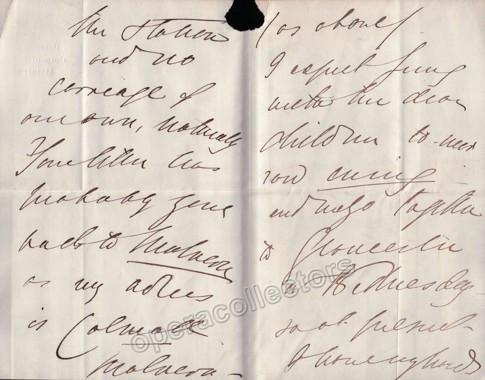 the station
and no
carriage of
our own, naturally
Your letter has
probably gone
back to Malvern
as my address
is
Malvern -
(as above)
I expect Jenny
with the dear
children to-mor
row evening -
and we go together
to Gloucester
on Wednesday -
so at present
I have my hands
operacollectors